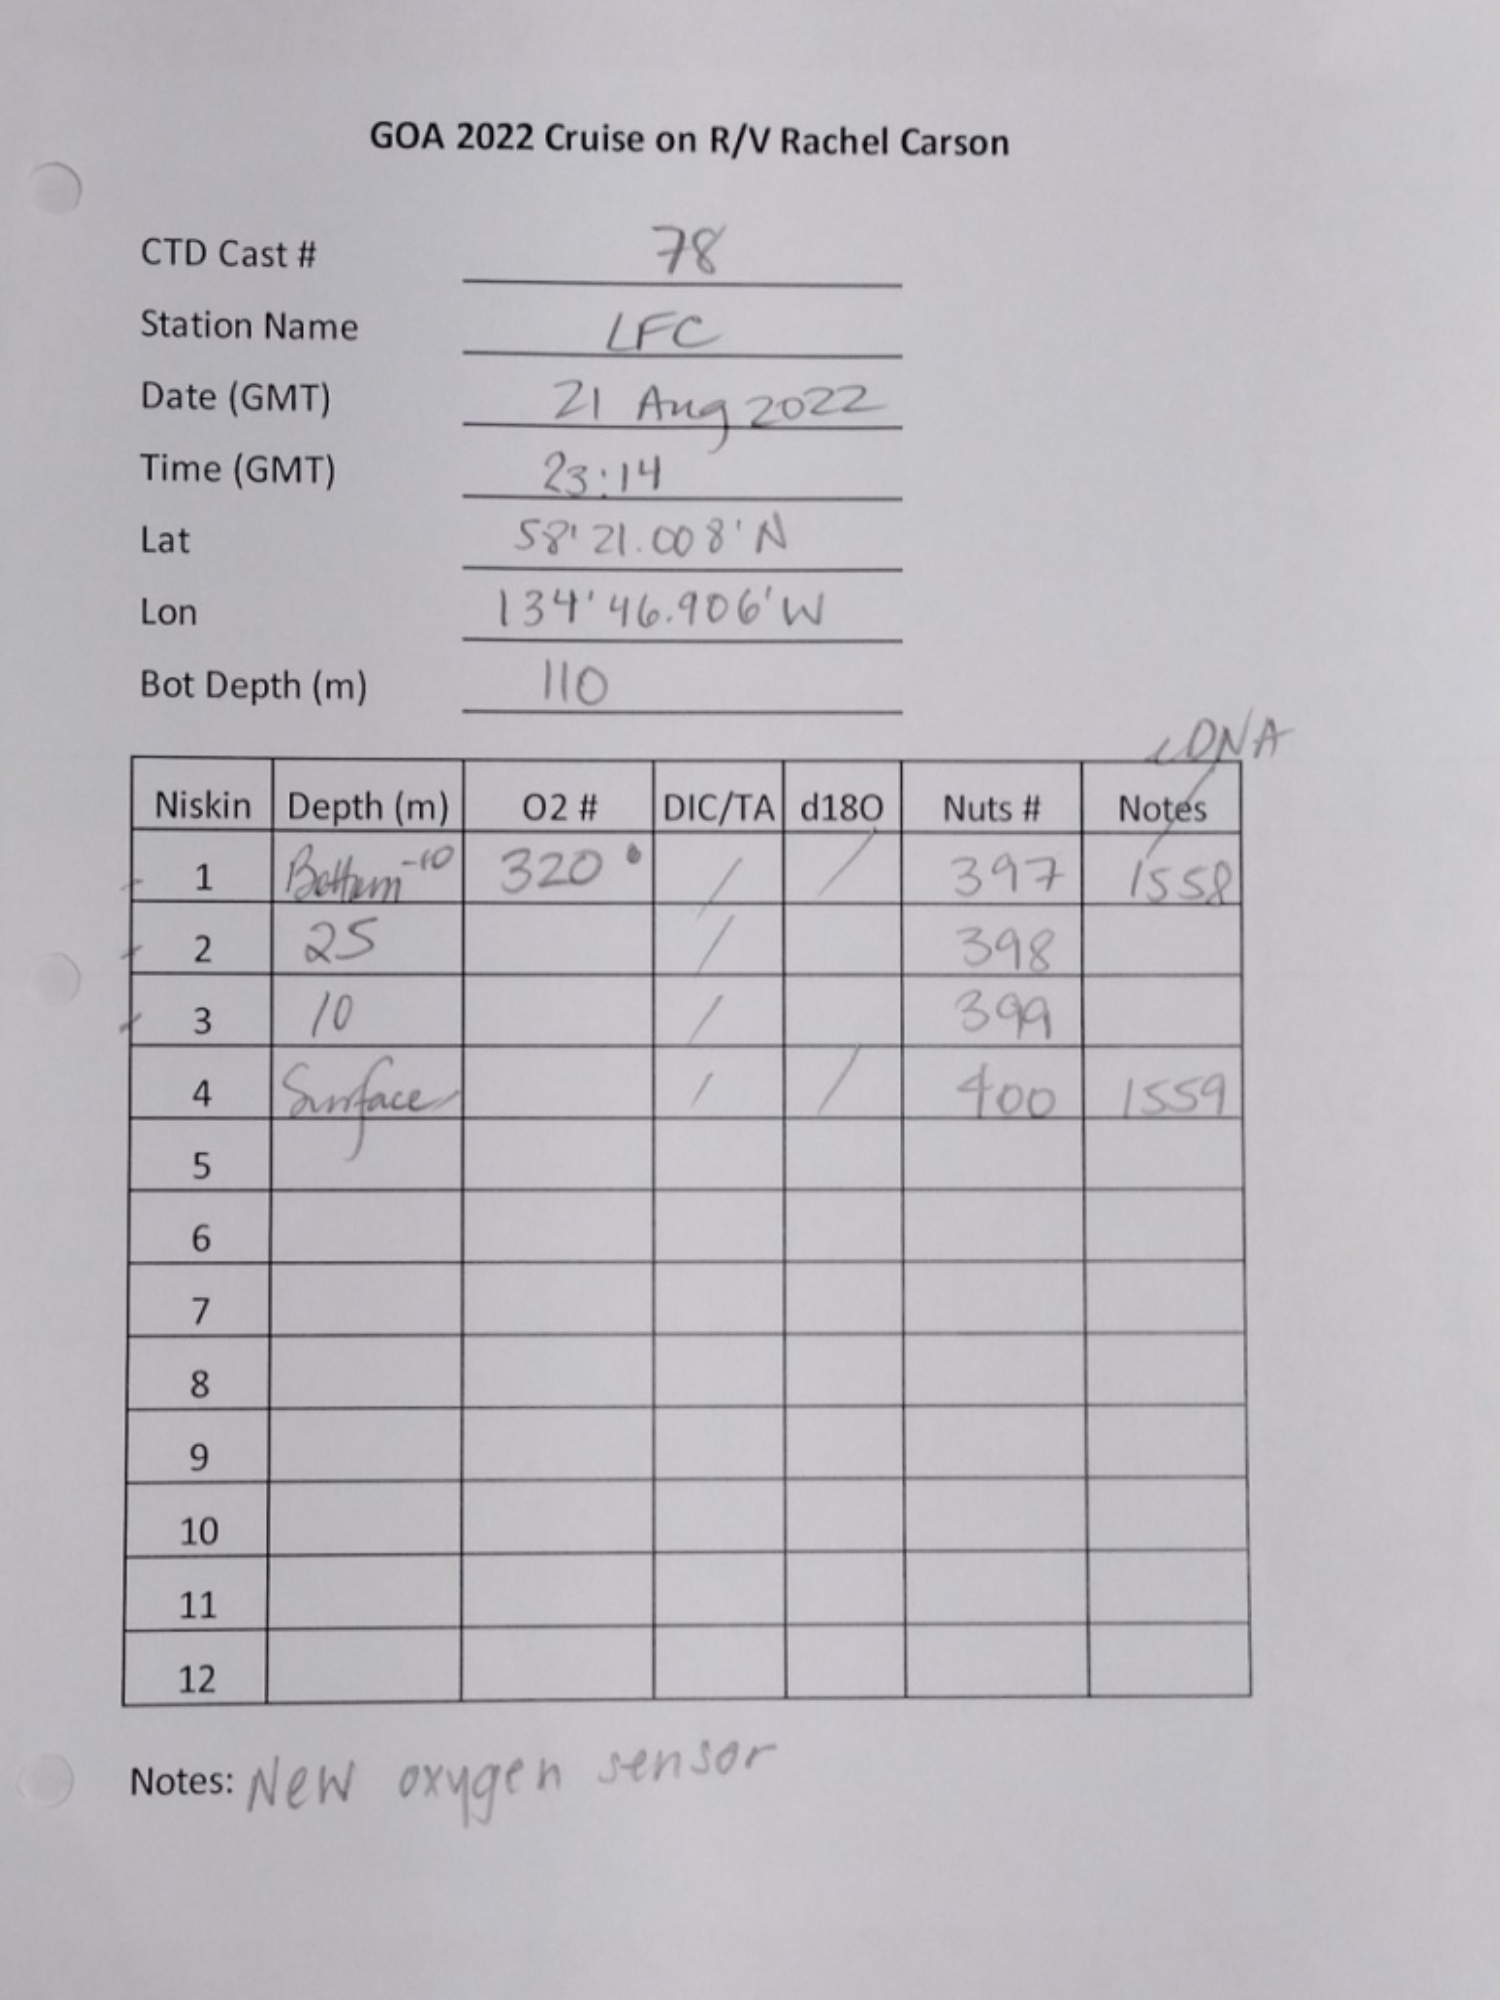 GOA 2022 Cruise on R/V Rachel Carson
CTD Cast # 78
Station Name LFC
Date (GMT) 21 Aug 2022
Time (GMT) 23:14
Lat 58' 21.008' N
Lon 134' 46.906' W
Bot Depth (m) 110
eDNA
Niskin Depth (m) O2 # DIC/TA d18O Nuts # Notes
1 Bottom -10 320 / / 397 1558
2 25 / 398
3 10 / 399
4 Surface / / 400 1559
5
6
7
8
9
10
11
12
Notes: New oxygen sensor